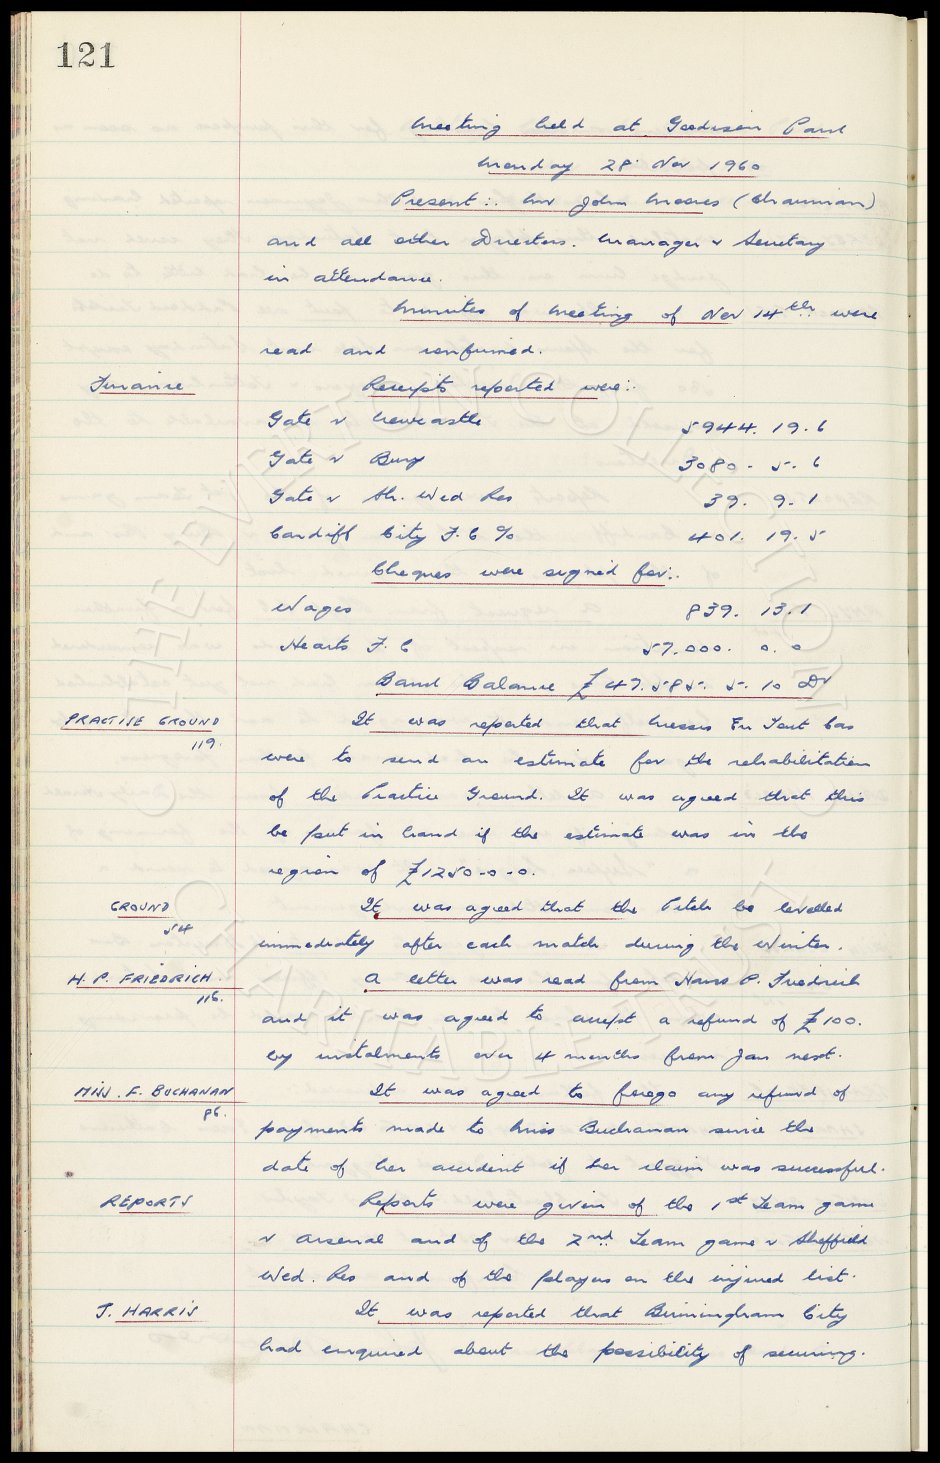 121
Meeting held at Goodison Park
Monday 28th Nov 1960
Present :. Mr John Moores (Chairman)
and all other Directors. Manager & Secretary
in attendance.
Minutes of Meeting of Nov 14th were
read and confirmed.
Finance Receipts reported were:.
Gate v Newcastle 5944. 19. 6
Gate v Bury 3080. 5. 6
Gate v Sh. Wed Res 39. 9. 1
Cardiff City F.C % 401. 19. 5
Cheques were signed for:.
Wages 839. 13. 1
Hearts F.C 57.000. 0. 0
Bank Balance £47.585. 5. 10 Dr
PRACTISE GROUND It was reported that Messrs En Tout Cas
119.
were to send an estimate for the rehabilitation
of the Practice Ground. It was agreed that this
be put in hand if the estimate was in the
region of £1250-0-0.
GROUND It was agreed that the Pitch be levelled
54
immediately after each match during the Winter.
H. P. FRIEDRICH. A letter was read from Hans P. Friedrich
116.
and it was agreed to accept a refund of £100.
by instalments over 4 months from Jan next.
MISS. F. BUCHANAN It was agreed to forego any refund of
86.
payments made to Miss Buchanan since the
date of her accident if her claim was successful.
REPORTS Reports were given of the 1st Team game
v Arsenal and of the 2nd Team game v Sheffield
Wed. Res and of the players on the injured list.
J. HARRIS It was reported that Birmingham City
had enquired about the possibility of securing.
THE EVERTON COLLECTION
CHARITABLE TRUST